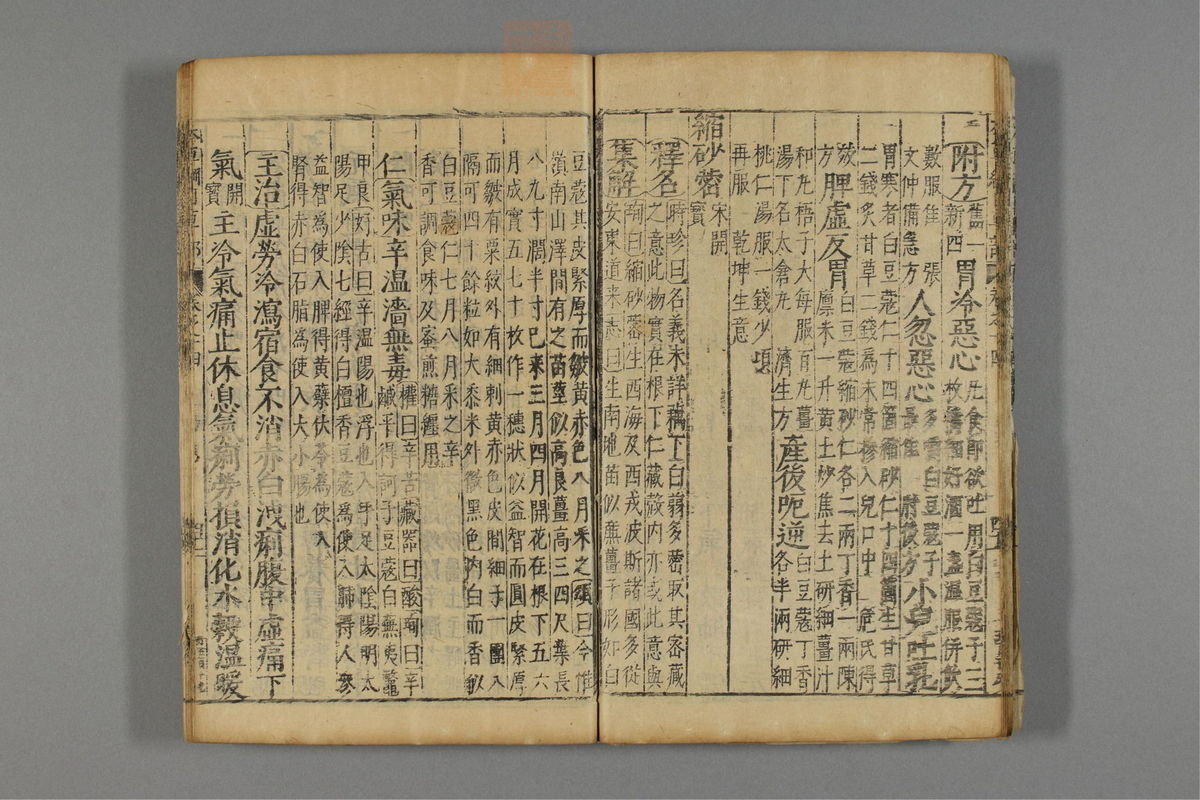 附方舊一新四胃冷惡心凡食即欲吐用白豆蔻子三枚搗細好酒一盞溫服併飲
數服佳張文仲備急方人忽惡心多嚼白豆蔻子最佳肘後方小兒吐乳
胃寒者白豆蔻仁十四箇縮砂仁十四箇生甘草二錢炙甘草二錢為末常摻入兒口中危氏得
效方脾虛反胃白豆蔻縮砂仁各二兩丁香一兩陳廩米一升黃土炒焦去土研細薑汁
和丸梧子大每服百丸薑湯下名太倉丸濟生方產後呃逆白豆蔻丁香各半兩研細
桃仁湯服一錢少頃再服乾坤生意
縮砂蔤宋開寶
釋名時珍曰名義未詳藕下白蒻多蔤取其密藏之意此物實在根下仁藏殼內亦或此意與
集解珣曰縮砂蔤生西海及西戎波斯諸國多從安東道來志曰生南地苗似廉薑子形如白
豆蔻其皮緊厚而皺黃赤色八月采之頌曰今惟嶺南山澤間有之苗莖似高良薑高三四尺葉長
八九寸濶半寸已來三月四月開花在根下五六月成實五七十枚作一穗狀似益智而圓皮緊厚
而皺有粟紋外有細刺黃赤色皮間細子一團八隔可四十餘粒如大黍米外微黑色內白而香似
白豆蔻仁七月八月采之辛香可調食味及蜜煎糖纏用
仁氣味辛溫濇無毒權曰辛苦藏器曰酸珣曰辛鹹平得訶子豆蔻白蕪荑鱉
甲良好古曰辛溫陽也浮也入手足太陰陽明太陽足少陰七經得白檀香豆蔻為使入肺得人參
益智為使入脾得黃蘗茯苓為使入腎得赤白石脂為使入大小腸也
主治虛勞冷瀉宿食不消赤白洩痢腹中虛痛下
氣開寶主冷氣痛止休息氣痢勞損消化水穀溫暖